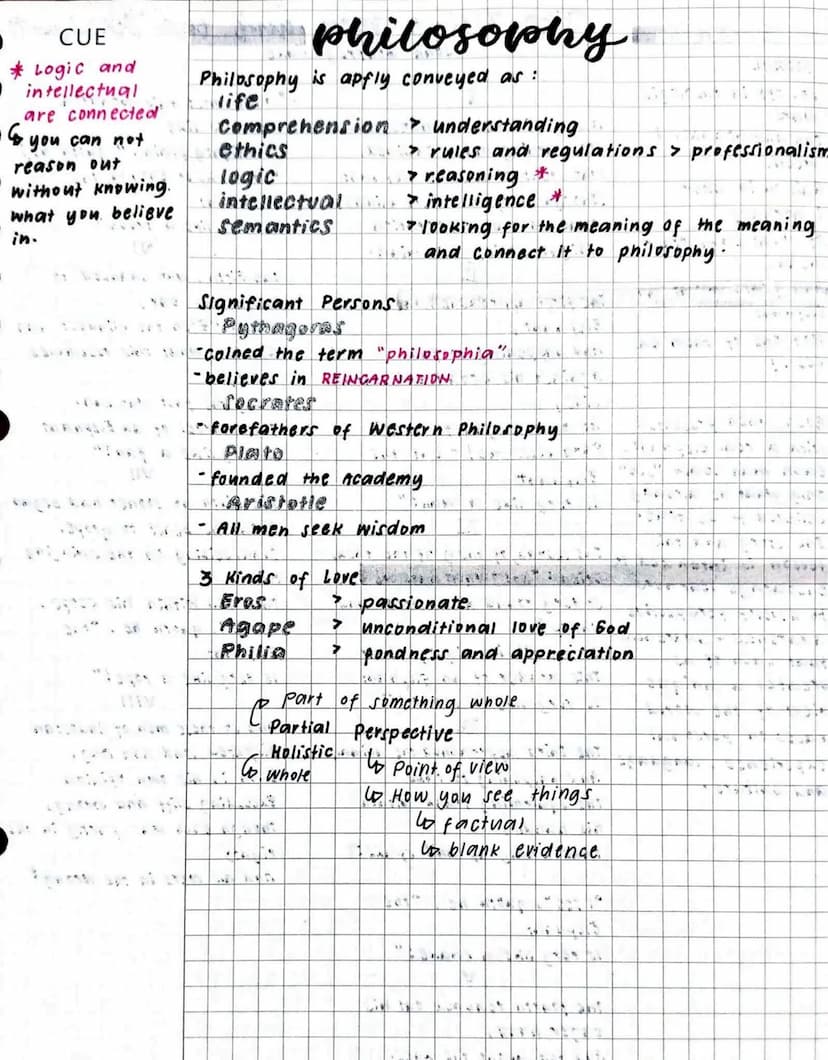 CUE
* Logic and
intellectual
are connected
↳ you can not
reason out
without knowing
what you believe
in.
philosophy
Philosophy is apfly conveyed as :
life
comprehension > understanding
ethics > rules and regulations > professionalism
logic > reasoning *
intellectual > intelligence *
semantics > looking for the meaning of the meaning
and connect it to philosophy.
Significant Persons
Pythagoras
- coined the term "philosophia"
- believes in REINCARNATION
Socrates
- forefathers of Western Philosophy
Plato
- founded the Academy
Aristotle
- All men seek wisdom
3 Kinds of Love
Eros > passionate
Agape > unconditional love of God
Philia > pondness and appreciation
part of something whole
Partial Perspective
Holistic
↳ whole
↳ Point of view
↳ How you see things
↳ factual
↳ blank evidence